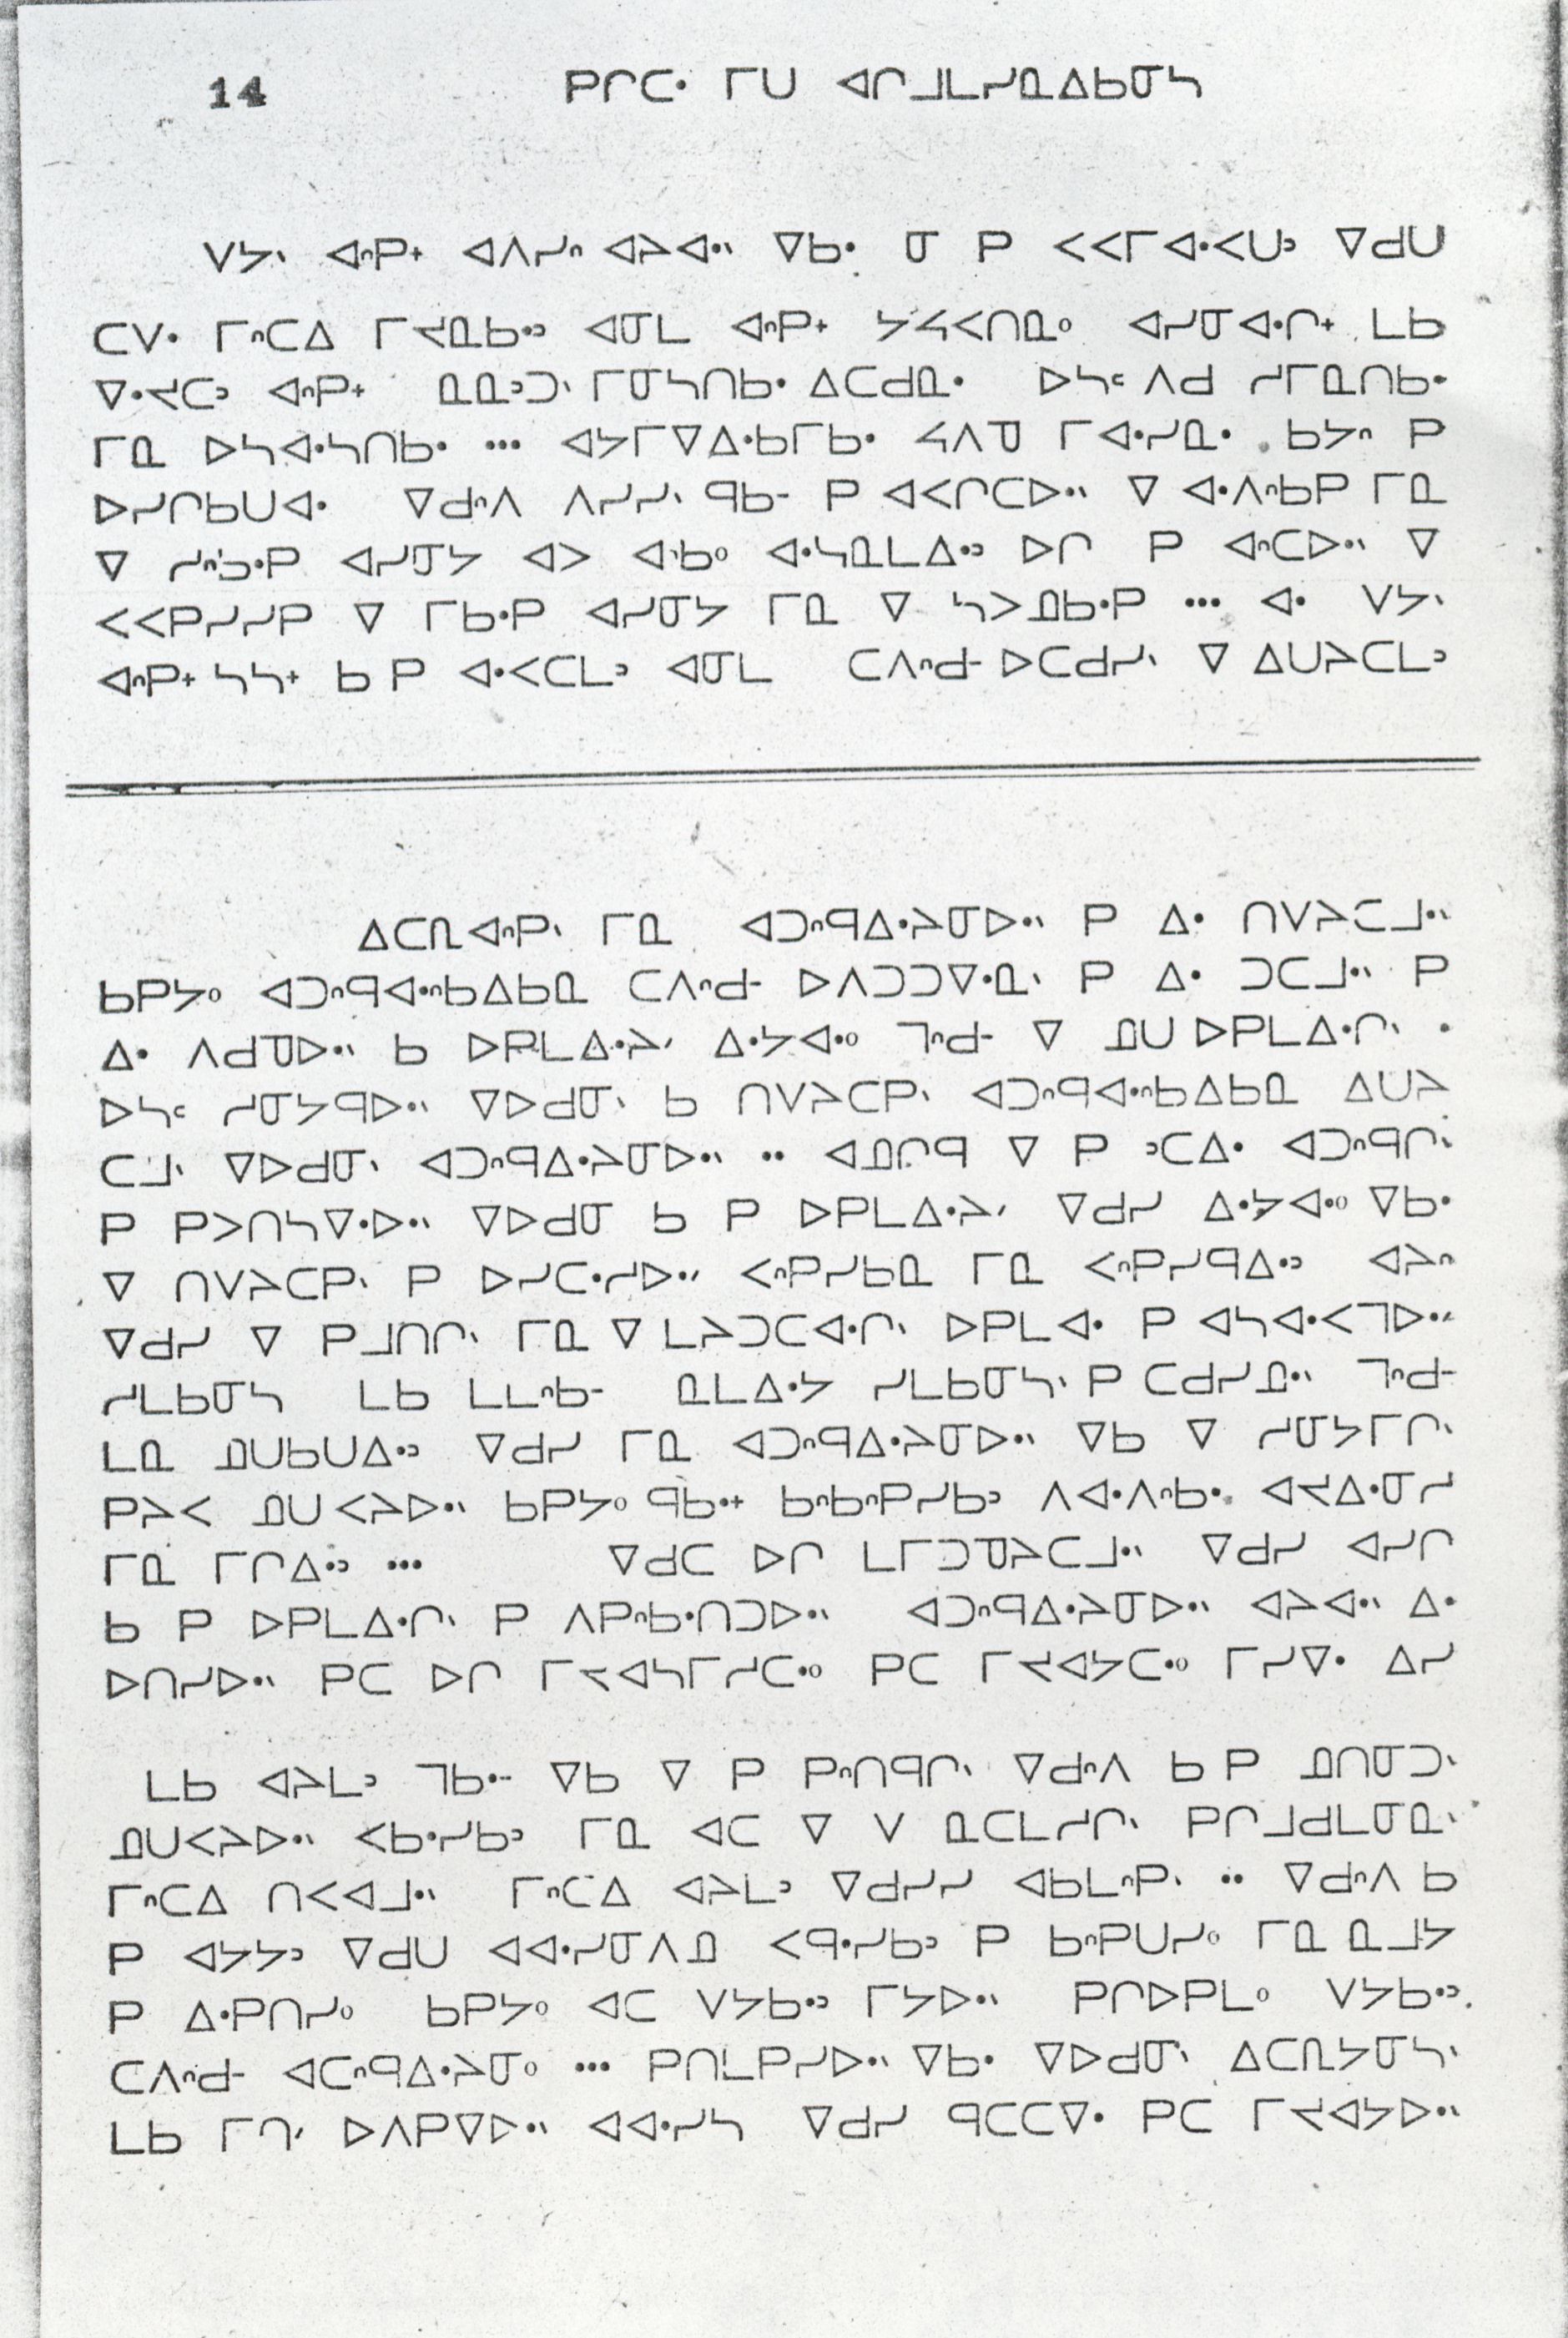 14 ᑭᒋᑕᐧ ᒥᑌ ᐊᒋᒧᒪᓯᓇᐃᑲᓂᓴ
ᐯᔭᐠ ᐊᐢᑭᕀ ᐊᐱᓯᐢ ᐊᔨᐊᐧᐠ ᐁᑲᐧ ᓂ ᑭ ᐸᐸᒥᐊᐧᐸᑌᐣ ᐁᑯᑌ
ᑕᐯᐧ ᒥᐢᑕᐃ ᒥᔪᓇᑲᐧᐣ ᐊᓂᒪ ᐊᐢᑭᕀ ᔭᔦᐸᑎᓇᐤ ᐊᓯᓂᐊᐧᒋᕀ ᒪᑲ
ᐁᐧᔪᑕᐣ ᐊᐢᑭᕀ ᓇᓇᐣᑐᐠ ᒥᓂᓴᑎᑲᐧ ᐃᑕᑯᓇᐧ ᐅᓴᒼ ᐱᑯ ᓯᒥᓇᑎᑲᐧ
ᒥᓇ ᐅᓴᐊᐧᓴᑎᑲᐧ ᐊᔭᒥᐁᐃᐧᑲᒥᑲᐧ ᓭᐱᑫ ᒥᐊᐧᓯᓇᐧ ᑲᔭᐢ ᑭ
ᐅᓯᒋᑲᑌᐊᐧ ᐁᑯᐢᐱ ᐱᓯᓯᐠ ᑫᑲᐨ ᑭ ᐊᐸᒋᑕᐅᐧᐠ ᐁ ᐊᐧᐱᐢᑲᑭ ᒥᓇ
ᐁ ᓯᐢᑐᐧᑭ ᐊᓯᓂᔭ ᐊᐳ ᐊᐧᑲᐤ ᐊᐧᓴᓇᒪᐃᐧᐣ ᐅᒋ ᑭ ᐊᐢᑕᐅᐧᐠ ᐁ
ᐸᐸᑭᓯᓯᑭ ᐁ ᒥᑲᐧᑭ ᐊᓯᓂᔭ ᒥᓇ ᐁ ᓴᐳᓄᑲᐧᑭ ... ᐊᐧ ᐯᔭᐠ
ᐊᐢᑭᕀ ᓴᓴᕀ ᑲ ᑭ ᐊᐧᐸᑕᒪᐣ ᐊᓂᒪ ᑕᐱᐢᑯᐨ ᐅᑕᑯᓯᐠ ᐁ ᐃᑌᔨᑕᒪᐣ
ᐃᑕᐦᐊᐢᑭᐠ ᒥᓇ ᐊᑐᐢᑫᐃᐧᔨᓂᐅᐧᐠ ᑭ ᐃᐧ ᑎᐯᔨᑕᒧᐧᐠ
ᑲᑭᔭᐤ ᐊᑐᐢᑫᐊᐧᐢᑲᐃᑲᓇ ᑕᐱᐢᑯᐨ ᐅᐱᑐᑐᐁᐧᓇᐠ ᑭ ᐃᐧ ᑐᑕᒧᐧᐠ ᑭ
ᐃᐧ ᐱᑯᓀᐅᐧᐠ ᑲ ᐅᑭᒪᐃᐧᔨᐟ ᐃᐧᔭᐊᐧᐤ ᒣᐢᑯᐨ ᐁ ᓄᑌ ᐅᑭᒪᐃᐧᒋᐠ
ᐅᓴᒼ ᓯᓂᔭᑫᐅᐧᐠ ᐁᐅᑯᓂᐠ ᑲ ᑎᐯᔨᑕᑭᐠ ᐊᑐᐢᑫᐊᐧᐢᑲᐃᑲᓇ ᐃᑌᔨ
ᑕᒧᐠ ᐁᐅᑯᓂᐠ ᐊᑐᐢᑫᐃᐧᔨᓂᐅᐧᐠ .. ᐊᓄᒋᑫ ᐁ ᑭ ᐣᑕᐃᐧ ᐊᑐᐢᑫᒋᐠ
ᑭ ᑭᐳᑎᓴᐁᐧᐅᐧᐠ ᐁᐅᑯᓂ ᑲ ᑭ ᐅᑭᒪᐃᐧᔨᐟ ᐁᑯᓯ ᐃᐧᔭᐊᐧᐤ ᐁᑲᐧ
ᐁ ᑎᐯᔨᑕᑭᐠ ᑭ ᐅᓯᑕᐧᓯᐅᐧᐠ ᐸᐢᑭᓯᑲᓇ ᒥᓇ ᐸᐢᑭᓯᑫᐃᐧᐣ ᐊᔨᐢ
ᐁᑯᓯ ᐁ ᑭᒧᑎᒋᐠ ᒥᓇ ᐁ ᒪᔨᑐᑕᐊᐧᒋᐠ ᐅᑭᒪᐊᐧ ᑭ ᐊᓴᐊᐧᐸᒣᐅᐧᐠ
ᓯᒪᑲᓂᓴ ᒪᑲ ᒪᒪᐢᑲᐨ ᓇᒪᐃᐧᔭ ᓯᒪᑲᓂᓴᐠ ᑭ ᑕᑯᓯᓄᐧᐠ ᒣᐢᑯᐨ
ᒪᓇ ᓄᑌᑲᑌᐃᐧᐣ ᐁᑯᓯ ᒥᓇ ᐊᑐᐢᑫᐃᐧᔨᓂᐅᐧᐠ ᐁᑲ ᐁ ᓯᓂᔭᒥᒋᐠ
ᑭᔨᐸ ᓄᑌᐸᔨᐅᐧᐠ ᑲᑭᔭᐤ ᑫᑲᐧᕀ ᑲᐢᑲᐢᑭᓯᑲᐣ ᐱᐊᐧᐱᐢᑲᐧ ᐊᔪᐃᐧᓂᓯ
ᒥᓇ ᒥᒋᐃᐧᐣ ... ᐁᑯᑕ ᐅᒋ ᒪᒥᑐᓀᔨᑕᒧᐧᐠ ᐁᑯᓯ ᐊᓯᒋ
ᑲ ᑭ ᐅᑭᒪᐃᐧᒋᐠ ᑭ ᐱᑭᐢᑲᐧᑎᑐᐅᐧᐠ ᐊᑐᐢᑫᐃᐧᔨᓂᐅᐧᐠ ᐊᔨᐊᐧᐠ ᐃᐧ
ᐅᑎᓯᐅᐧᐠ ᑭᑕ ᐅᒋ ᒥᔪᐊᓴᒥᓯᑕᐧᐤ ᑭᑕ ᒥᔪᐊᔭᑕᐧᐤ ᒥᓯᐁᐧ ᐃᓯ
ᒪᑲ ᐊᔨᒪᐣ ᒣᑲᐧᐨ ᐁᑲ ᐁ ᑭ ᑭᐢᑎᑫᒋᐠ ᐁᑯᐢᐱ ᑲ ᑭ ᓄᑎᓂᑐᐠ
ᓄᑌᐸᔨᐅᐧᐠ ᐸᑲᐧᓯᑲᐣ ᒥᓇ ᐊᑕ ᐁ ᐯ ᓇᑕᒪᓯᒋᐠ ᑭᒋᒧᑯᒪᓂᓇᐠ
ᒥᐢᑕᐃ ᑎᐸᐊᒧᐧᐠ ᒥᐢᑕᐃ ᐊᔨᒪᐣ ᐁᑯᓯᓯ ᐊᑲᒪᐢᑭᐠ .. ᐁᑯᐢᐱ ᑲ
ᑭ ᐊᔭᔭᐣ ᐁᑯᑌ ᐊᐊᐧᓯᓂᐱᓄ ᐸᑫᐧᓯᑲᐣ ᑭ ᑲᐢᑭᑌᓯᐤ ᒥᓇ ᓇᒧᔭ
ᑭ ᐃᐧᑭᑎᓯᐤ ᑲᑭᔭᐤ ᐊᑕ ᐯᔭᑲᐧᐣ ᒥᔭᐅᐧᐠ ᑭᒋᐅᑭᒪᐤ ᐯᔭᑲᐧᐣ
ᑕᐱᐢᑯᐨ ᐊᑕᐢᑫᐃᐧᔨᓂᐤ ... ᑭᑎᒪᑭᓯᐅᐧᐠ ᐁᑲᐧ ᐁᐅᑯᓂᐠ ᐃᑕᐦᔭᓂᓴᐠ
ᒪᑲ ᒥᑐᓂ ᐅᐱᑭᐁᐅᐧᐠ ᐊᐊᐧᓯᓴ ᐁᑯᓯ ᑫᑕᑕᐁᐧ ᑭᑕ ᒥᔪᐊᔭᐅᐧᐠ